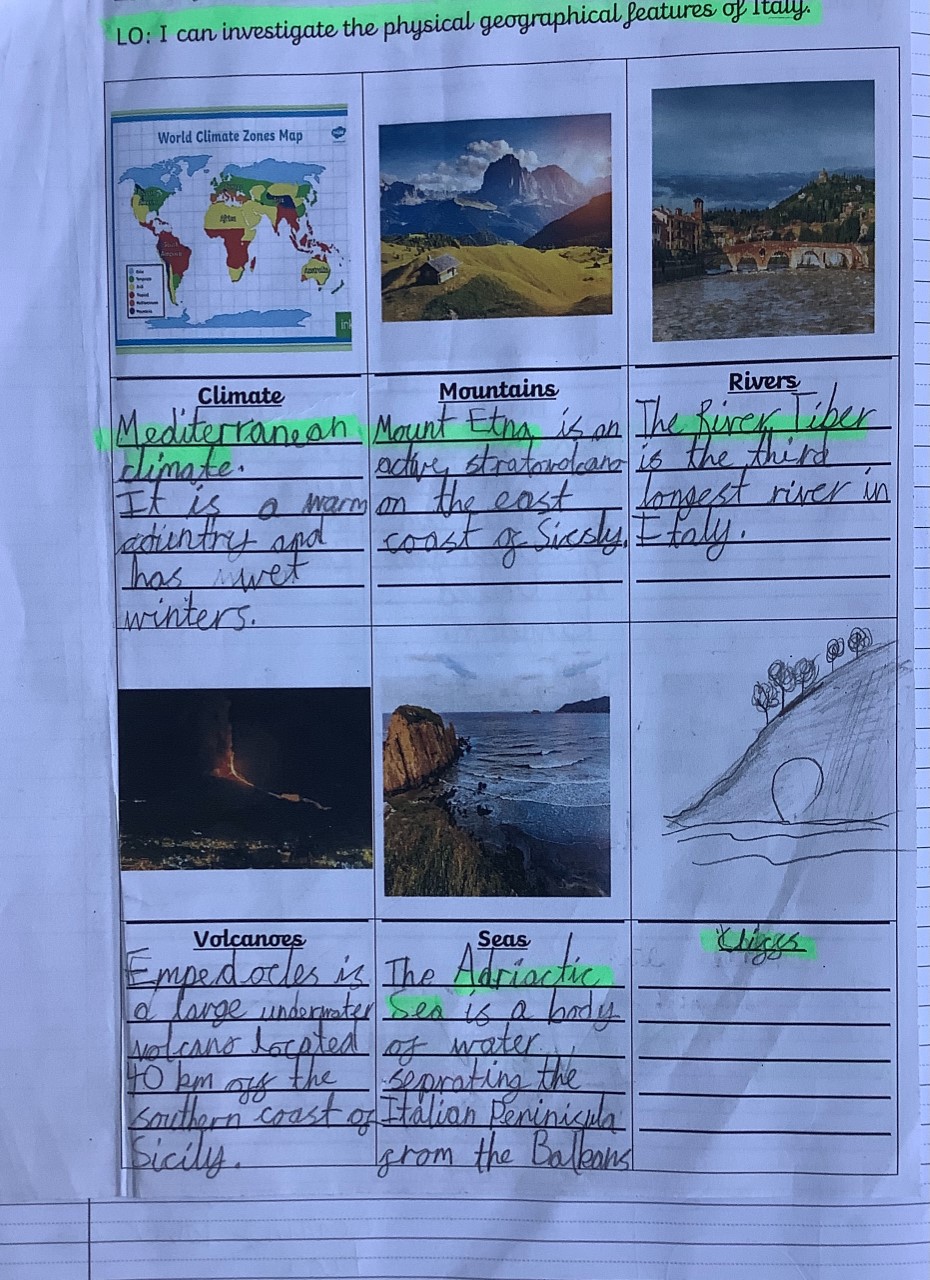 LO: I can investigate the physical geographical features of Italy.
World Climate Zones Map
Africa
Australia
Climate
Mediterranean
climate.
It is a warm
country and
has wet
winters.
Mountains
Mount Etna is an
active stratovolcano
on the east
coast of Sicsly.
Rivers
The River Tiber
is the third
longest river in
Etaly.
Volcanoes
Empedocles is
a large underwater
volcano located
40 km off the
southern coast of
Sicily.
Seas
The Adriactic
Sea is a body
of water
seprating the
Italian Peninisula
from the Balkans
Cliffs